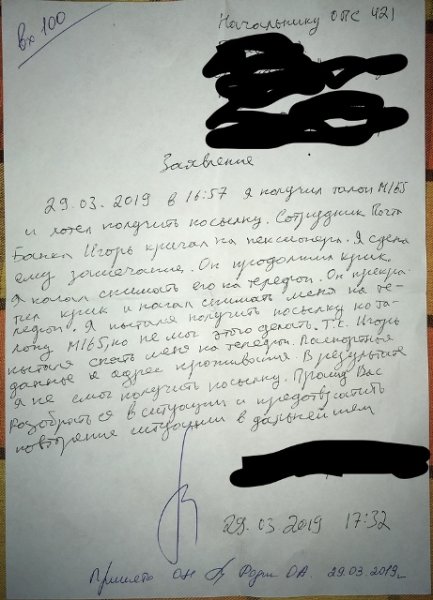 вх 100
Начальнику ОПС 421
Заявление
29.03.2019 в 16:57 я получил талон М165
и хотел получить посылку. Сотрудник Почта
Банка Игорь кричал на пенсионера. Я сдела
ему замечание. Он продолжил крик.
Я начал снимать его на телефон. Он прекра-
тил крик и начал снимать меня на те-
лефон. Я пытался получить посылку по та-
лону М165, но не мог этого сделать. Т.к. Игорь
пытался снять меня на телефон. Паспортные
данные и адрес проживания. В результате
я не смог получить посылку. Прошу Вас
разобраться в ситуации и предотвратить
повторение ситуации в дальнейшем
29.03 2019 17:32
Принято ОН О.А. 29.03.2019г